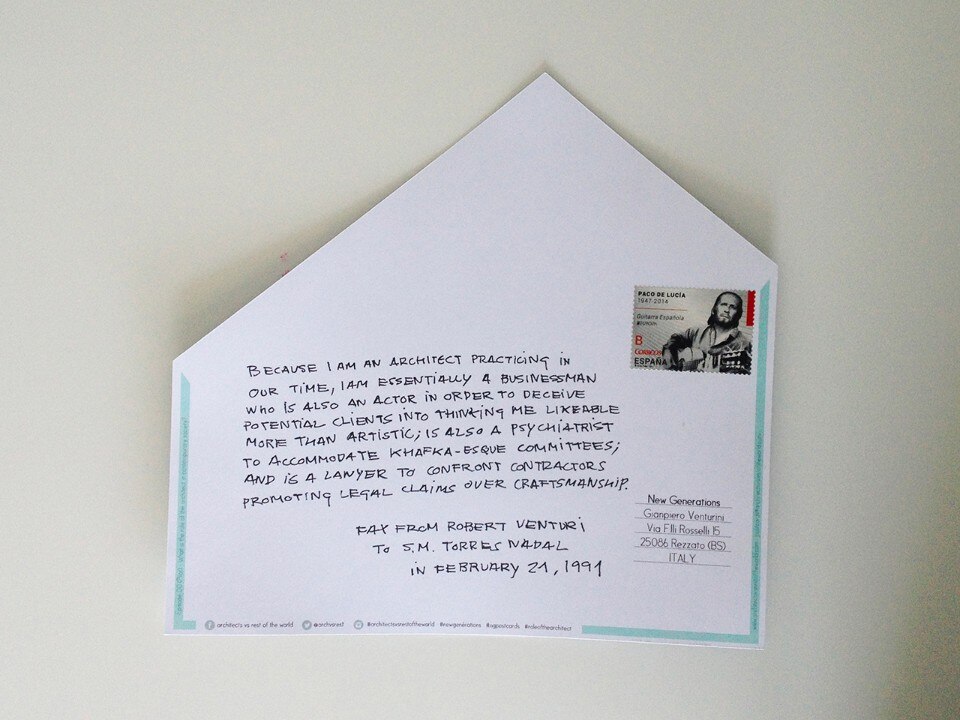 PACO DE LUCÍA
1947-2014
Guitarra Española
B
CORREOS
ESPAÑA
BECAUSE I AM AN ARCHITECT PRACTICING IN
OUR TIME, I AM ESSENTIALLY A BUSINESSMAN
WHO IS ALSO AN ACTOR IN ORDER TO DECEIVE
POTENTIAL CLIENTS INTO THINKING ME LIKEABLE
MORE THAN ARTISTIC; IS ALSO A PSYCHIATRIST
TO ACCOMMODATE KHAFKA-ESQUE COMMITTEES;
AND IS A LAWYER TO CONFRONT CONTRACTORS
PROMOTING LEGAL CLAIMS OVER CRAFTSMANSHIP.
FAX FROM ROBERT VENTURI
TO S.M. TORRES NADAL
IN FEBRUARY 21, 1991
New Generations
Gianpiero Venturini
Via F.lli Rosselli 15
25086 Rezzato (BS)
ITALY
architects vs rest of the world @archvsrest #architectsvsrestoftheworld #newgenerations #ngpostcards #roleofthearchitect